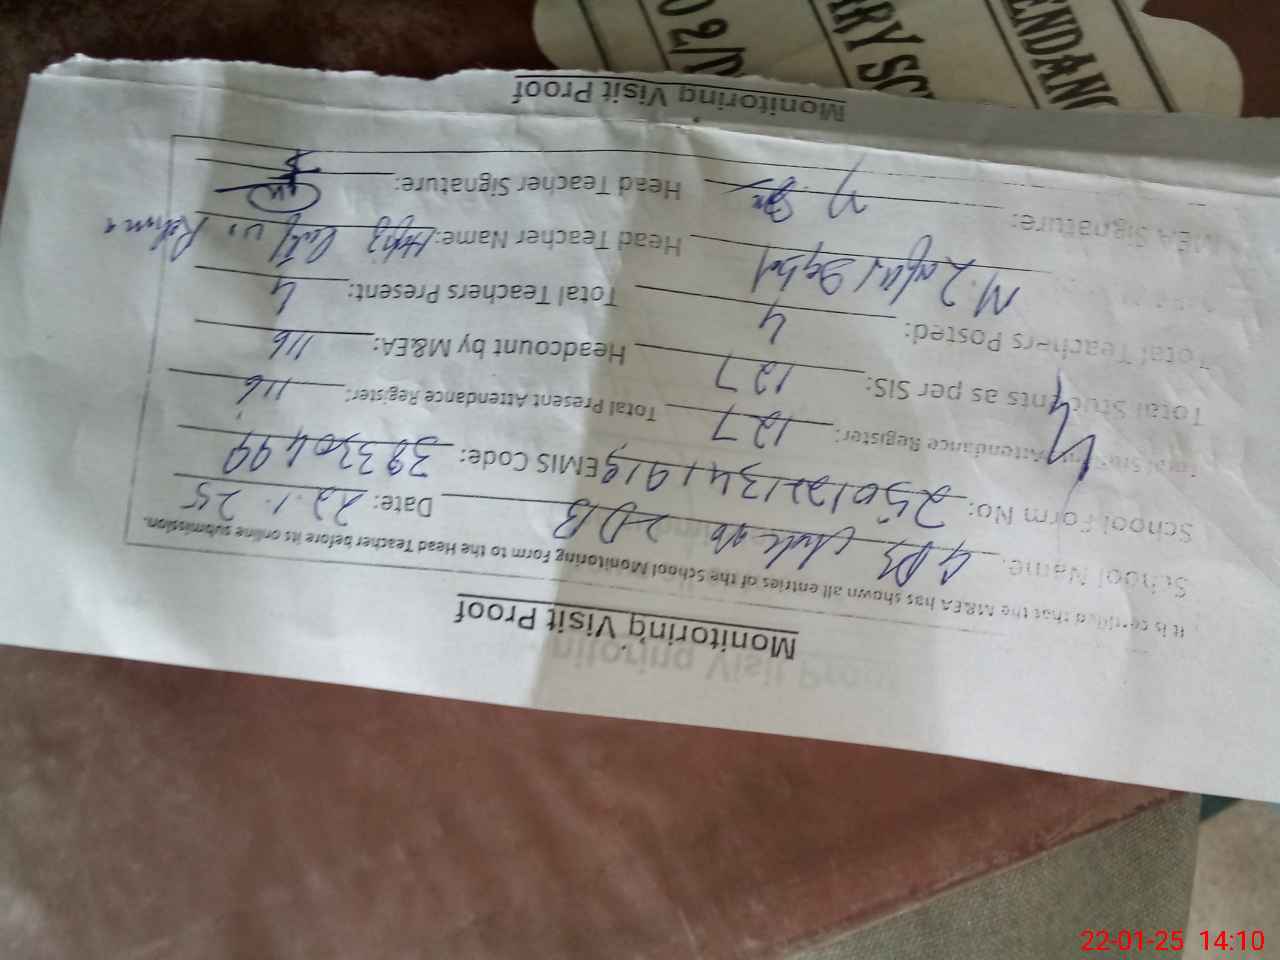 Monitoring Visit Proof
It is certified that the M&EA has shown all entries of the School Monitoring Form to the Head Teacher before its online submission.
School Name: GPS Chak No 2DB Date: 22.1.25
School Form No: EMIS Code: 38330499
Attendance Register: 127 Total Present Attendance Register: 116
Total Students as per SIS: 127 Headcount by M&EA: 116
Total Teachers Posted: 4 Total Teachers Present: 4
M. Iqbal Head Teacher Name: Hafiz ur Rehman
M&EA Signature: Head Teacher Signature:
Monitoring Visit Proof
02/
ARY SC
ENDANC
22-01-25 14:10